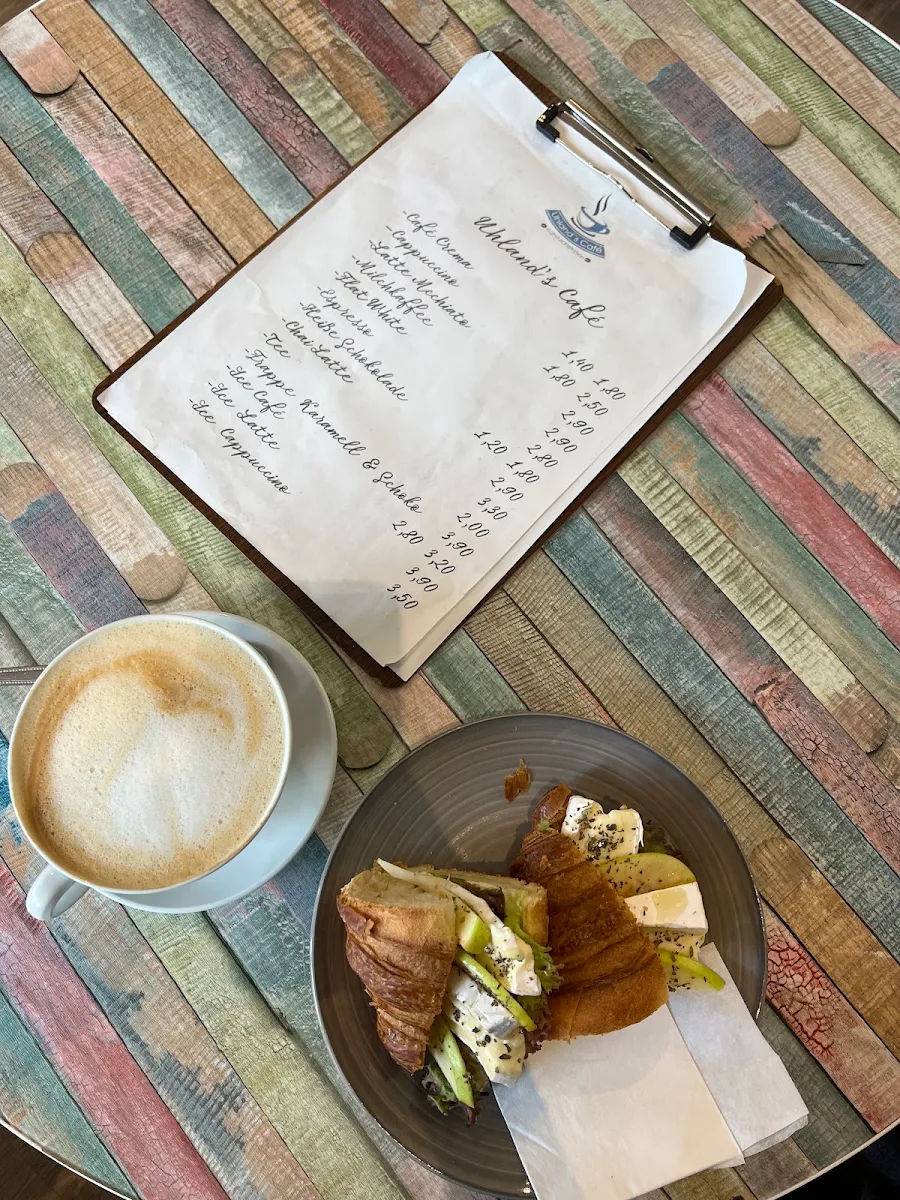 Uhland's Café
Uhland's Café
-Café Crema 1,40 1,80
-Cappuccino 1,80 2,50
-Latte Mcchiato 2,90
-Milchkaffee 2,90
-Flat White 2,80
-Espresso 1,20 1,80
-Heiße Schokolade 2,90
-Chai Latte 3,30
-Tee 2,00
-Frappe Karamell & Schoko 3,90
-Ice Café 2,80 3,20
-Ice Latte 3,90
-Ice Cappuccino 3,50